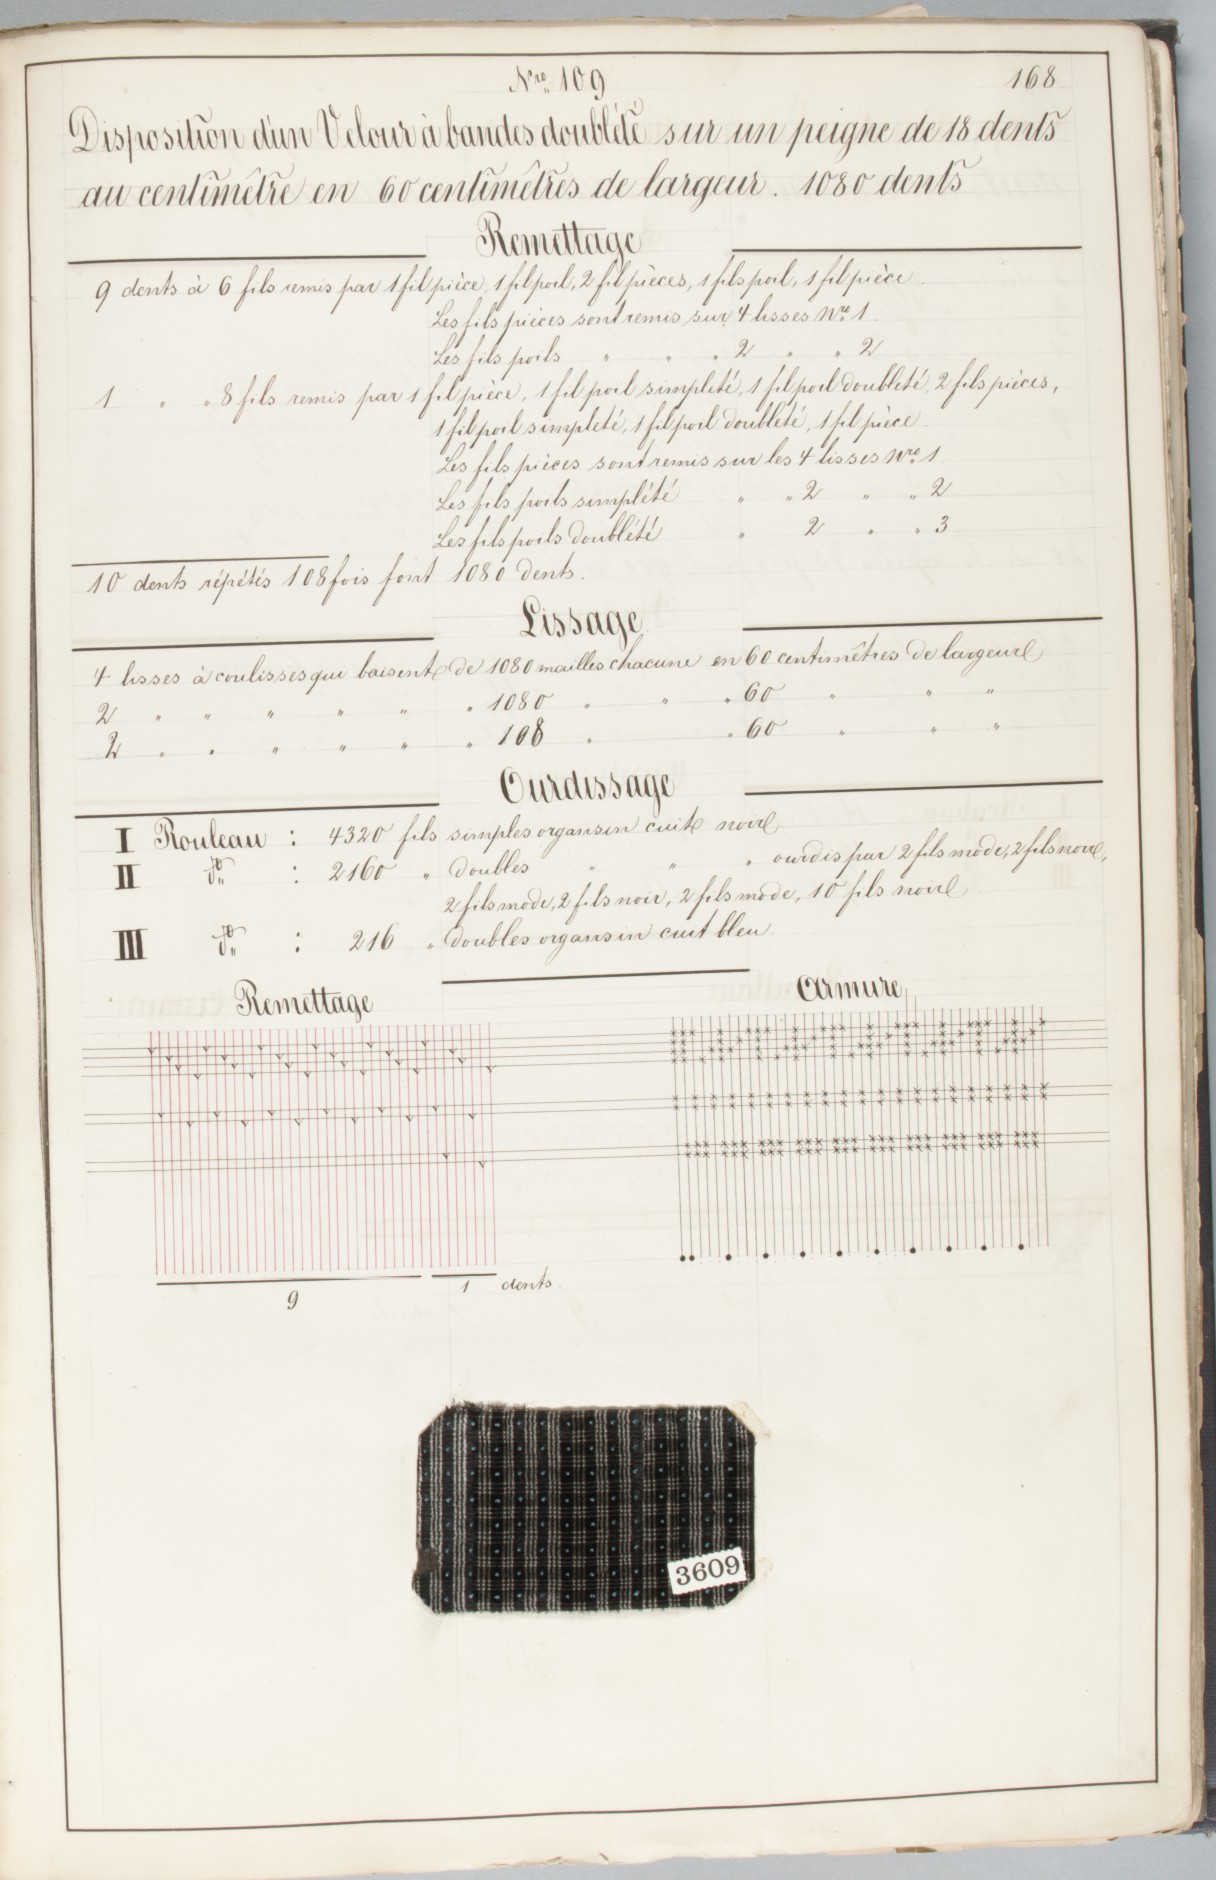 Nro 109
168
Disposition d'un Velour à bandes doublété sur un peigne de 18 dents
au centimêtre en 60 centimêtres de largeur. 1080 dents
Remettage
9 dents à 6 fils remis par 1 fil pièce, 1 fil poil, 2 fil pièces, 1 fils poil, 1 fil pièce.
Les fils pièces sont remis sur 4 lisses Nro 1.
Les fils poils " " " 2 " " 2
1 " " 8 fils remis par 1 fil pièce, 1 fil poil simpleté, 1 fil poil doubleté, 2 fils pièces,
1 fil poil simpleté, 1 fil poil doubleté, 1 fil pièce.
Les fils pièces sont remis sur les 4 lisses Nro 1
Les fils poils simplété " " 2 " " 2
Les fils poils doublété " 2 " " 3
10 dents répétés 108 fois font 1080 dents.
Lissage
4 lisses à coulisses qui baisent de 1080 mailles chacune en 60 centimêtres de largeur
2 " " " " " " 1080 " " " 60 " " "
2 " " " " " " 108 " " 60 " " "
Ourdissage
I Rouleau : 4320 fils simples organsin cuit noir
II do " : 2160 " doubles " " " ourdis par 2 fils mode, 2 fils noir,
2 fils mode, 2 fils noir, 2 fils mode, 10 fils noir
III do " : 216 " doubles organsin cuit bleu.
Remettage
Armure
9
1 dents.
3609